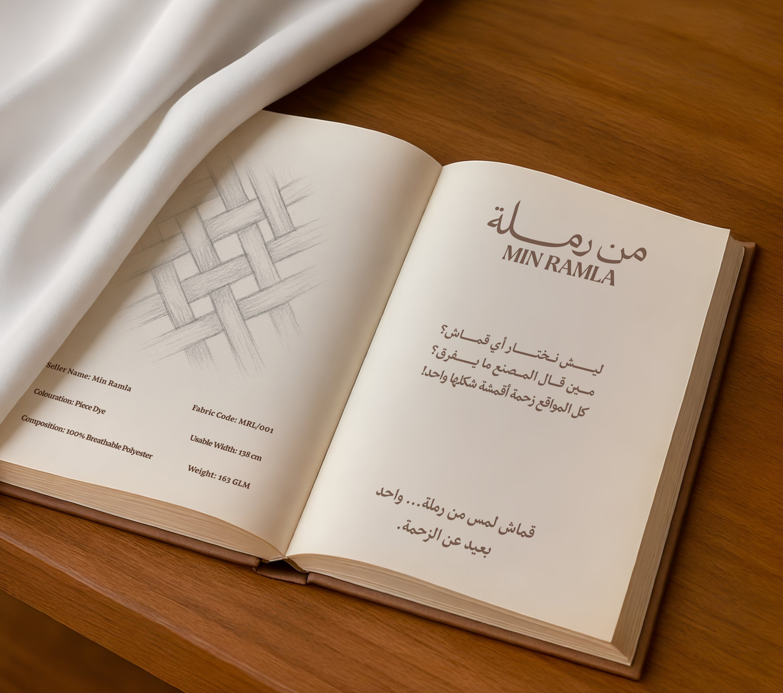 Seller Name: Min Ramla
Colouration: Piece Dye
Composition: 100% Breathable Polyester
Fabric Code: MRL/001
Usable Width: 138 cm
Weight: 163 GLM
من رملة
MIN RAMLA
ليـــش نـخـتـــار أي قمـــاش؟
مـين قــال المـصنع ما يـــفرق؟
كل المواقع زحمة أقمشة شكلها واحد!
قماش لمس من رملة... واحد
بعيد عن الزحمة.